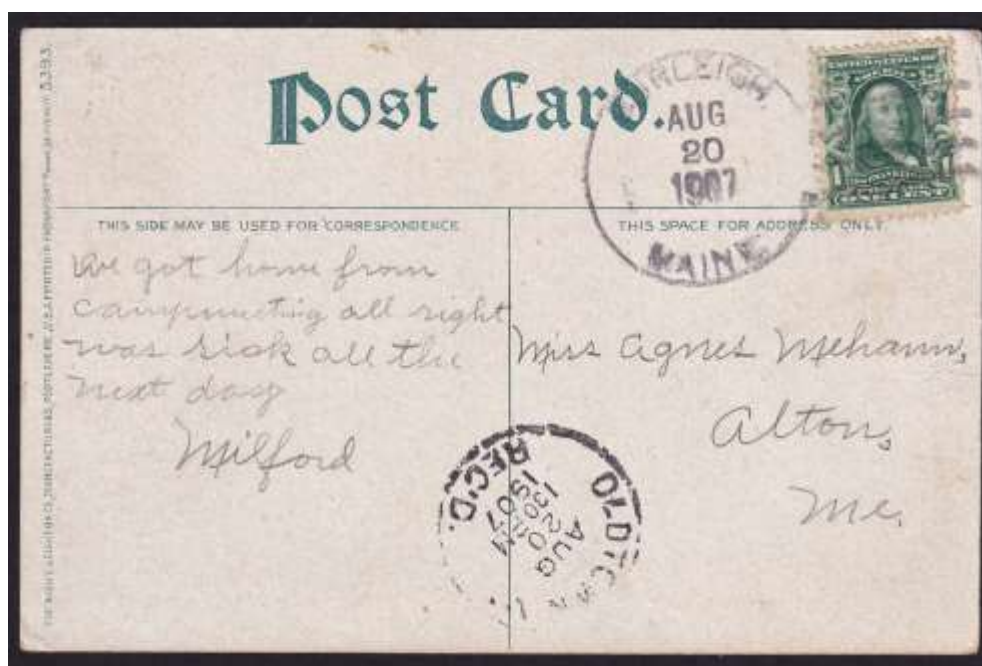 Post Card.
RLEIGH
AUG
20
1907
MAINE
UNITED STATES
ONE CENT
THIS SIDE MAY BE USED FOR CORRESPONDENCE
THIS SPACE FOR ADDRESS ONLY.
We got home from
campmeeting all right
was sick all the
next day
Milford
Miss Agnes
Alton,
Me.
OLDTOWN
REC'D.
AUG
20
1907
5393